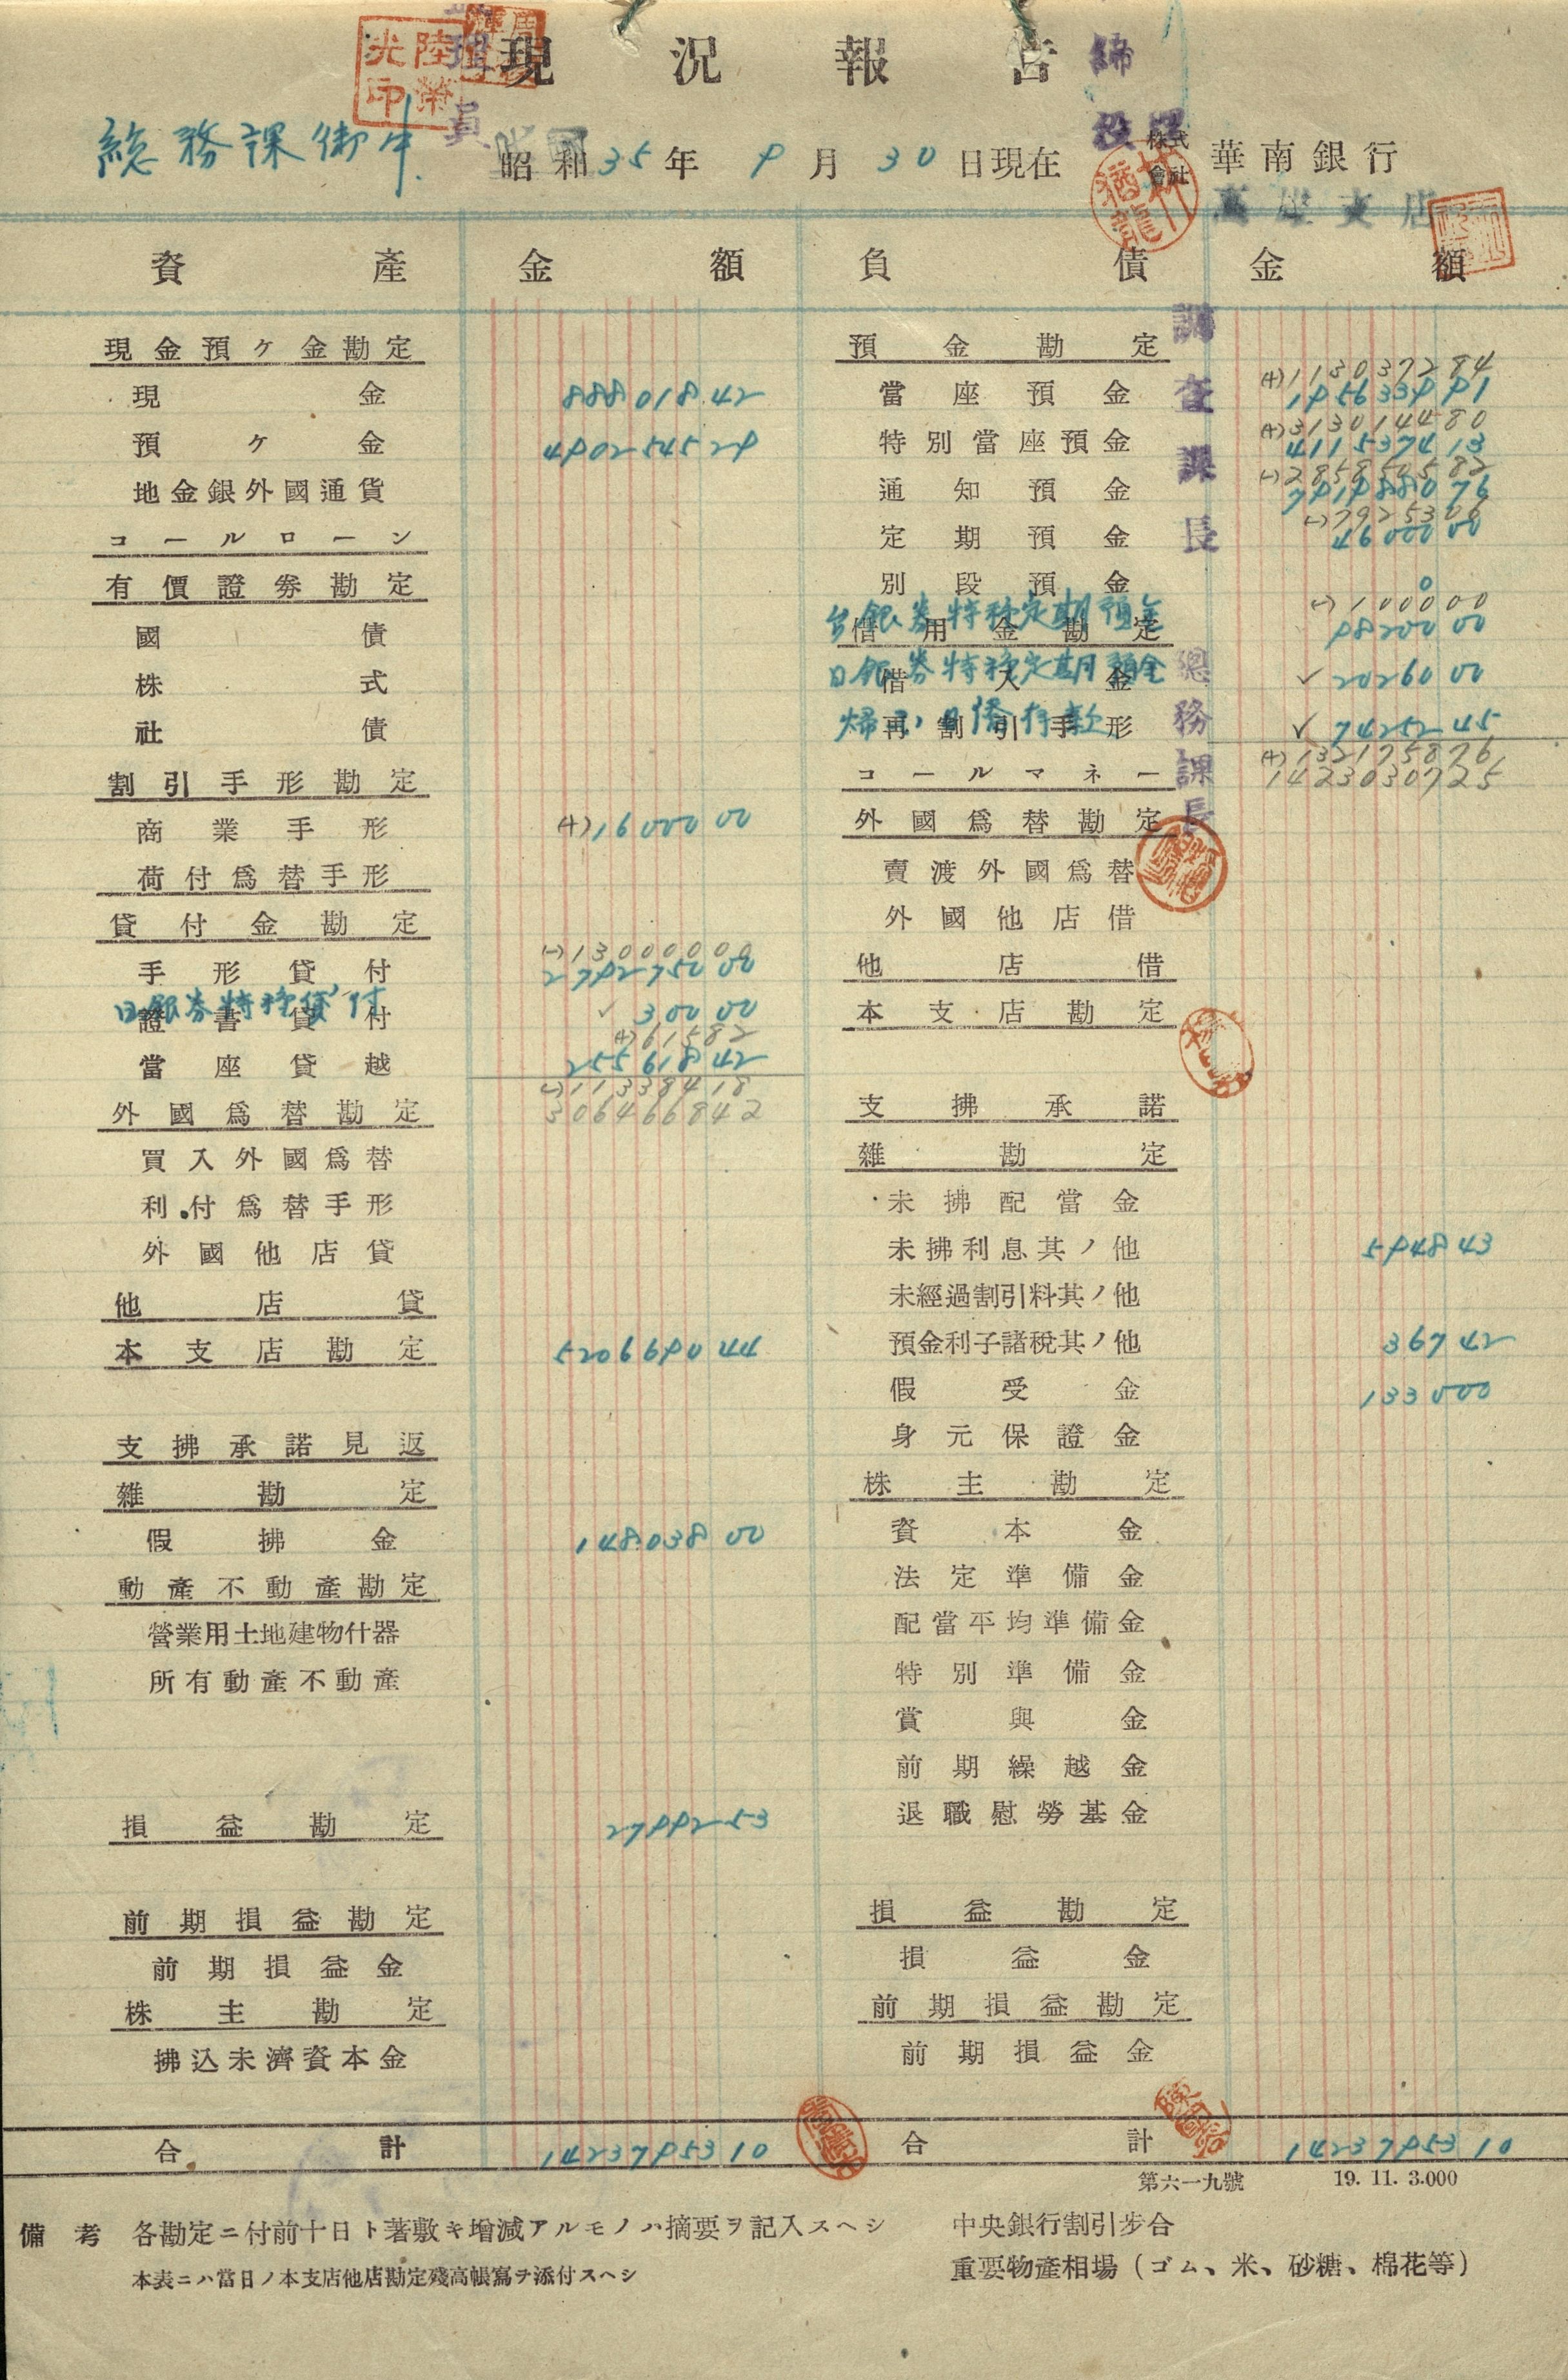 現況報告
總務課御中
昭和35年9月30日現在
株式會社 華南銀行
高雄支店
資產 金額 負債 金額
現金預ケ金勘定
現金 888018.42
預ケ金 4902545 29
地金銀外國通貨
コールローン
有價證券勘定
國債
株式
社債
割引手形勘定
商業手形 (+)16000 00
荷付爲替手形
貸付金勘定
(-)13000000
手形貸付 2792750 00
日銀券特種貸付
證書貸付 ✓ 300 00
(+)61582
當座貸越 255618 42
(-)11338418
外國爲替勘定 306466842
買入外國爲替
利付爲替手形
外國他店貸
他店貸
本支店勘定 5206690 44
支拂承諾見返
雜勘定
假拂金 148038 00
動產不動產勘定
營業用土地建物什器
所有動產不動產
損益勘定 27992 53
前期損益勘定
前期損益金
株主勘定
拂込未濟資本金
合計 14237953 10
預金勘定
(+)113037284
當座預金 1956339 91
(+)313014480
特別當座預金 4115374 13
(-)285850582
通知預金 7919880 76
(-)7925308
定期預金 46000 00
別段預金 0
(-)100000
台銀券特種定期預金 98200 00
借用金勘定
日銀券特種定期預金 ✓ 20260 00
借入金
歸國日僑存款 ✓ 74252 45
再割引手形
(+)132175876
コールマネー 1423030725
外國爲替勘定
賣渡外國爲替
外國他店借
他店借
本支店勘定
支拂承諾
雜勘定
未拂配當金
未拂利息其ノ他 5948 43
未經過割引料其ノ他
預金利子諸稅其ノ他 367 42
假受金 1330 00
身元保證金
株主勘定
資本金
法定準備金
配當平均準備金
特別準備金
賞與金
前期繰越金
退職慰勞基金
損益勘定
損益金
前期損益勘定
前期損益金
合計 14237953 10
調查課長
總務課長
第六一九號 19. 11. 3.000
備考 各勘定ニ付前十日ト著敷キ增減アルモノハ摘要ヲ記入スヘシ
本表ニハ當日ノ本支店他店勘定殘高帳寫ヲ添付スヘシ
中央銀行割引步合
重要物產相場（ゴム、米、砂糖、棉花等）